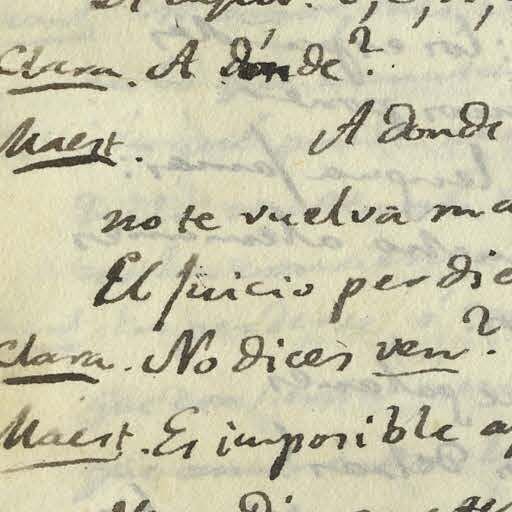 Clara. A dónde?
Maest. A donde
no te vuelva
El Juicio
Clara. No dices ven?
Maest. Es imposible